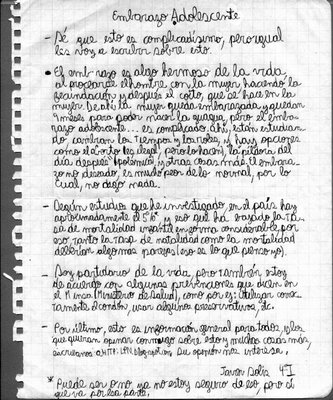 Embarazo Adolescente
- Sé que esto es complicadísimo, pero igual
les voy a escribir sobre esto.
• El embarazo es algo hermoso de la vida
al procrearse el hombre con la mujer haciendo la
fecundación y después el coito, que se hace en la
mujer. De ahí la mujer queda embarazada y quedan
9 meses para poder nacer la guagua, pero el emba-
razo adolescente... es complicado. Ahí, están estudian-
do cambian los tiempos y los roles, y hay opciones
como el aborto (es ilegal, pero lo hacen), la píldora del
día después (polémica), y otras cosas más. El embara-
zo no deseado, es mucho peor de lo normal, por lo
cual, no digo nada.
- Según estudios que he investigado, en el país hay
aproximadamente el y eso que ha bajado la ta-
sa de mortalidad infantil en forma considerable, por
eso, tanto la tasa de natalidad como la mortalidad
deberían algo parejas (eso es lo que pienso yo).
- Soy partidario de la vida, pero también estoy
de acuerdo con algunas prevenciones que dicen en
el Minsa (Ministerio de Salud), como por ej: Utilizar correc-
tamente el condón, usar algunos preservativos, etc.
- Por último, esto es información general para todos, y los
que quieran opinar conmigo sobre esto y muchas cosas más,
escríbanos a su opinión nos interesa.
Javier Solís 4°I
* Puede ser o no, ya no estoy seguro de eso, pero sí
que va por esa parte.